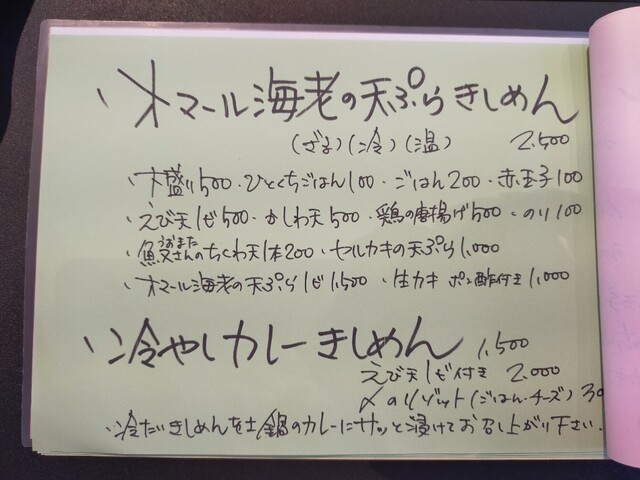 オマール海老の天ぷらきしめん
(ざる)(冷)(温) 2,500
・大盛り500・ひとくちごはん100・ごはん200・赤玉子100
・えび天1ピ500・かしわ天500・鶏の唐揚げ500・のり100
・魚又さんのちくわ天1本200・セルカキの天ぷら1,000
うおまた
・オマール海老の天ぷら1ピ1,500・生カキ ポン酢付き1,000
冷やしカレーきしめん 1,500
えび天1ピ付き 2,000
〆のリゾット(ごはん・チーズ)30
・冷たいきしめんを土鍋のカレーにサッと浸けてお召し上がり下さい.